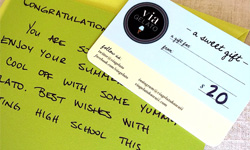 CONGRATULATION
YOU ARE SO
ENJOY YOUR SUMME
COOL OFF WITH SOME YUMM
LATO. BEST WISHES WITH
TING HIGH SCHOOL THIS
Via
GELATO
a sweet gift
a gift for
from
$ 20
follow us